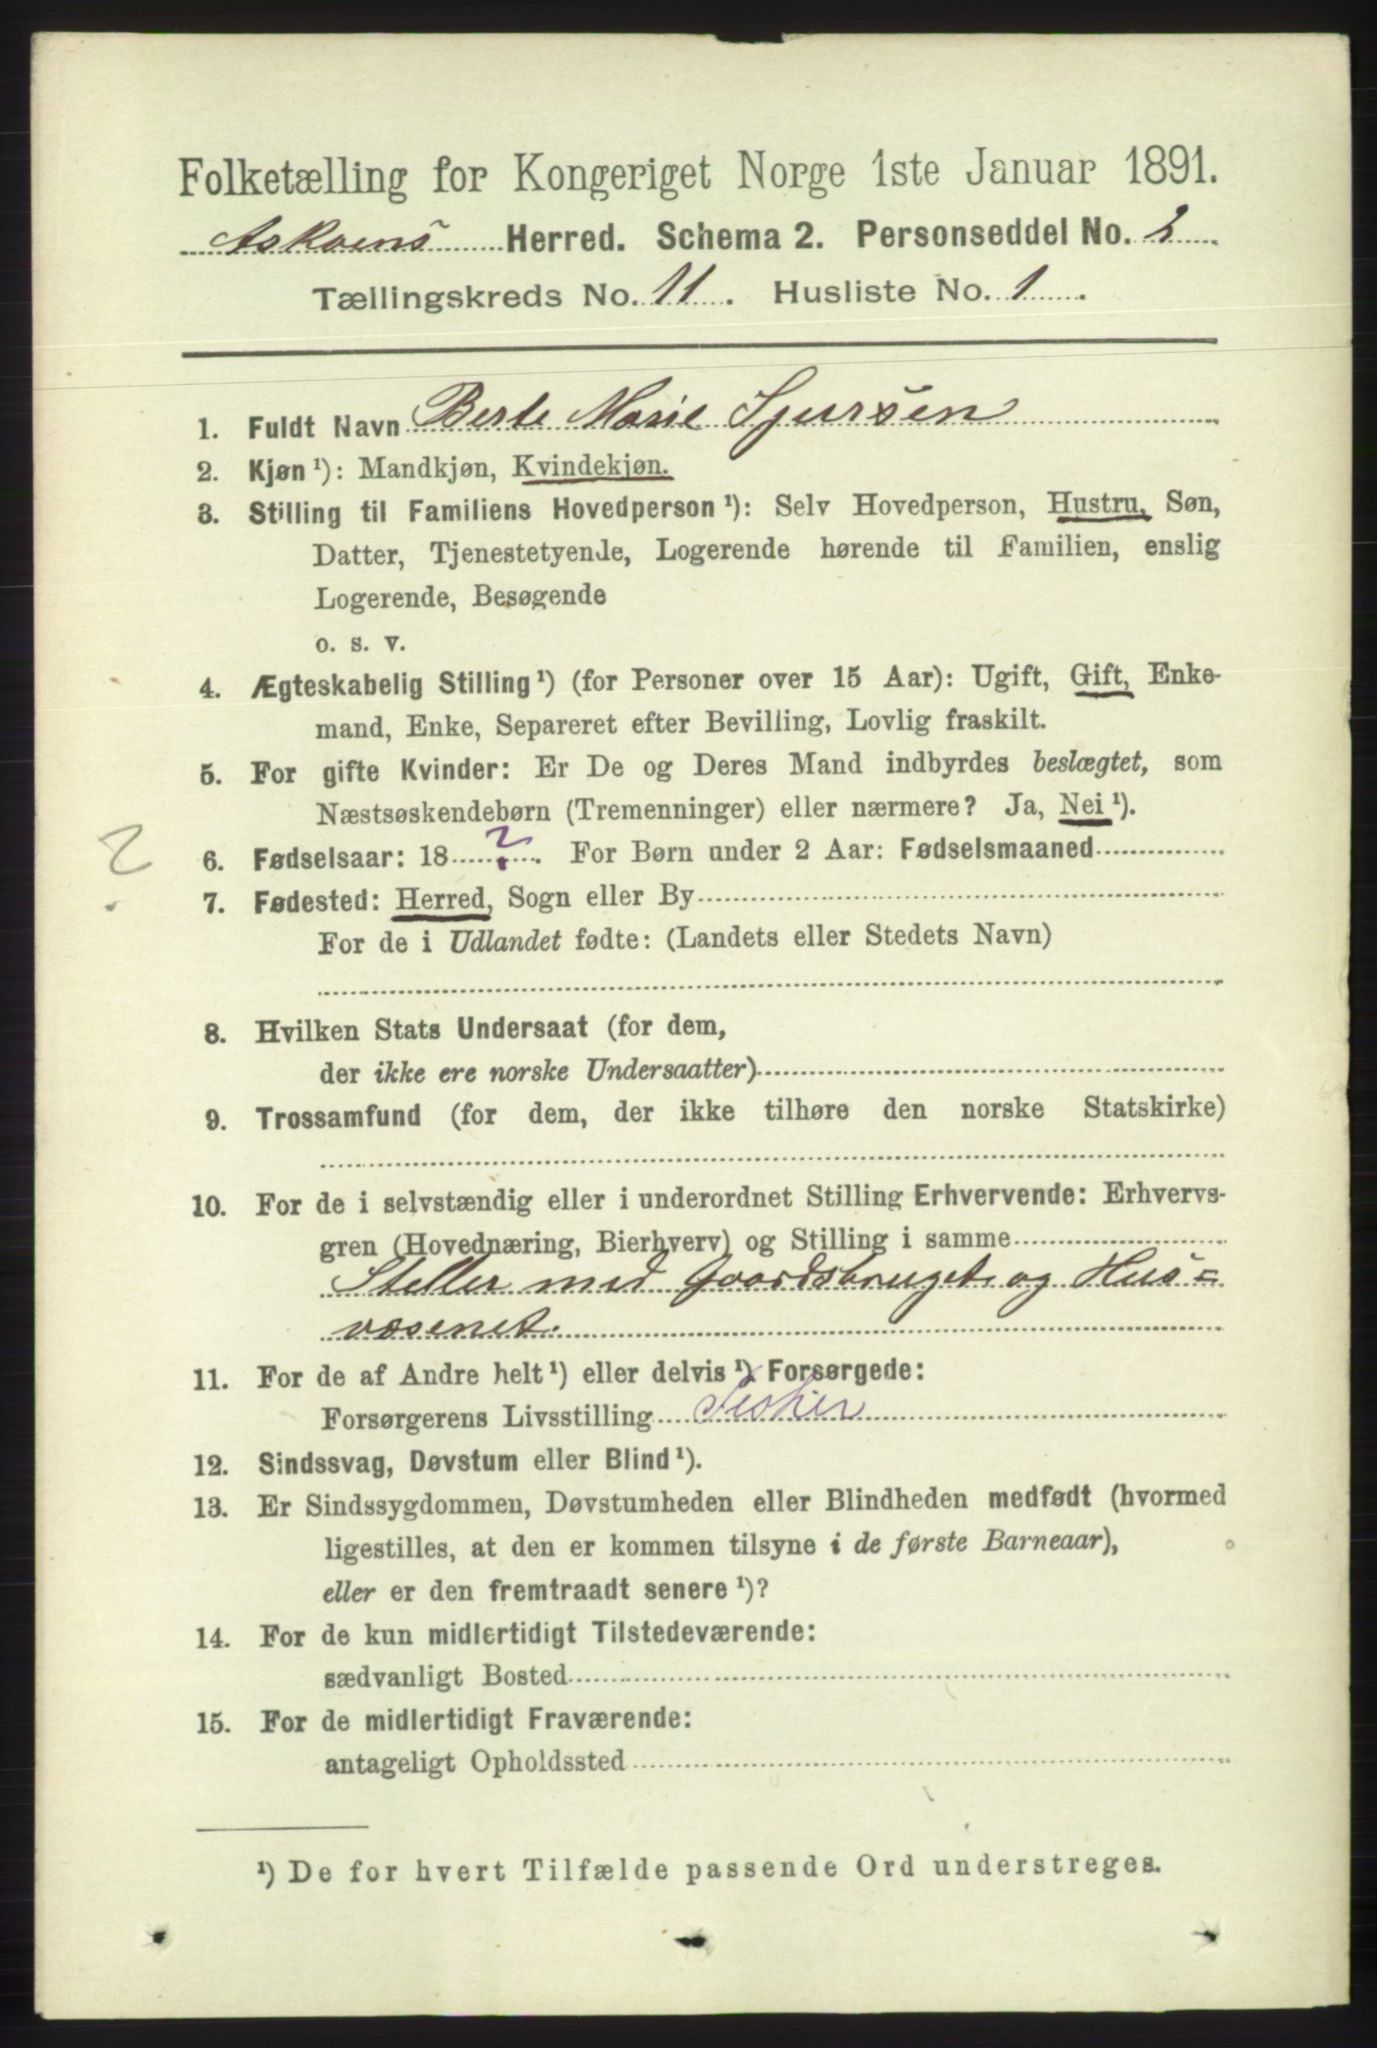 Folketælling for Kongeriget Norge 1ste Januar 1891.
Askøens Herred. Schema 2. Personseddel No. 2
Tællingskreds No. 11. Husliste No. 1.
1. Fuldt Navn Berte Marie Sjursen
2. Kjøn ¹): Mandkjøn, Kvindekjøn.
3. Stilling til Familiens Hovedperson ¹): Selv Hovedperson, Hustru, Søn,
Datter, Tjenestetyende, Logerende hørende til Familien, enslig
Logerende, Besøgende
o. s. v.
4. Ægteskabelig Stilling ¹) (for Personer over 15 Aar): Ugift, Gift, Enke-
mand, Enke, Separeret efter Bevilling, Lovlig fraskilt.
5. For gifte Kvinder: Er De og Deres Mand indbyrdes beslægtet, som
Næstsøskendebørn (Tremenninger) eller nærmere? Ja, Nei ¹).
? 6. Fødselsaar: 18 ? . For Børn under 2 Aar: Fødselsmaaned
7. Fødested: Herred, Sogn eller By
For de i Udlandet fødte: (Landets eller Stedets Navn)
8. Hvilken Stats Undersaat (for dem,
der ikke ere norske Undersaatter)
9. Trossamfund (for dem, der ikke tilhøre den norske Statskirke)
10. For de i selvstændig eller i underordnet Stilling Erhvervende: Erhvervs-
gren (Hovednæring, Bierhverv) og Stilling i samme
Steller med Gaardsbruget og Hus=
væsenet.
11. For de af Andre helt ¹) eller delvis ¹) Forsørgede:
Forsørgerens Livsstilling Fisker
12. Sindssvag, Døvstum eller Blind ¹).
13. Er Sindssygdommen, Døvstumheden eller Blindheden medfødt (hvormed
ligestilles, at den er kommen tilsyne i de første Barneaar),
eller er den fremtraadt senere ¹)?
14. For de kun midlertidigt Tilstedeværende:
sædvanligt Bosted
15. For de midlertidigt Fraværende:
antageligt Opholdssted
¹) De for hvert Tilfælde passende Ord understreges.